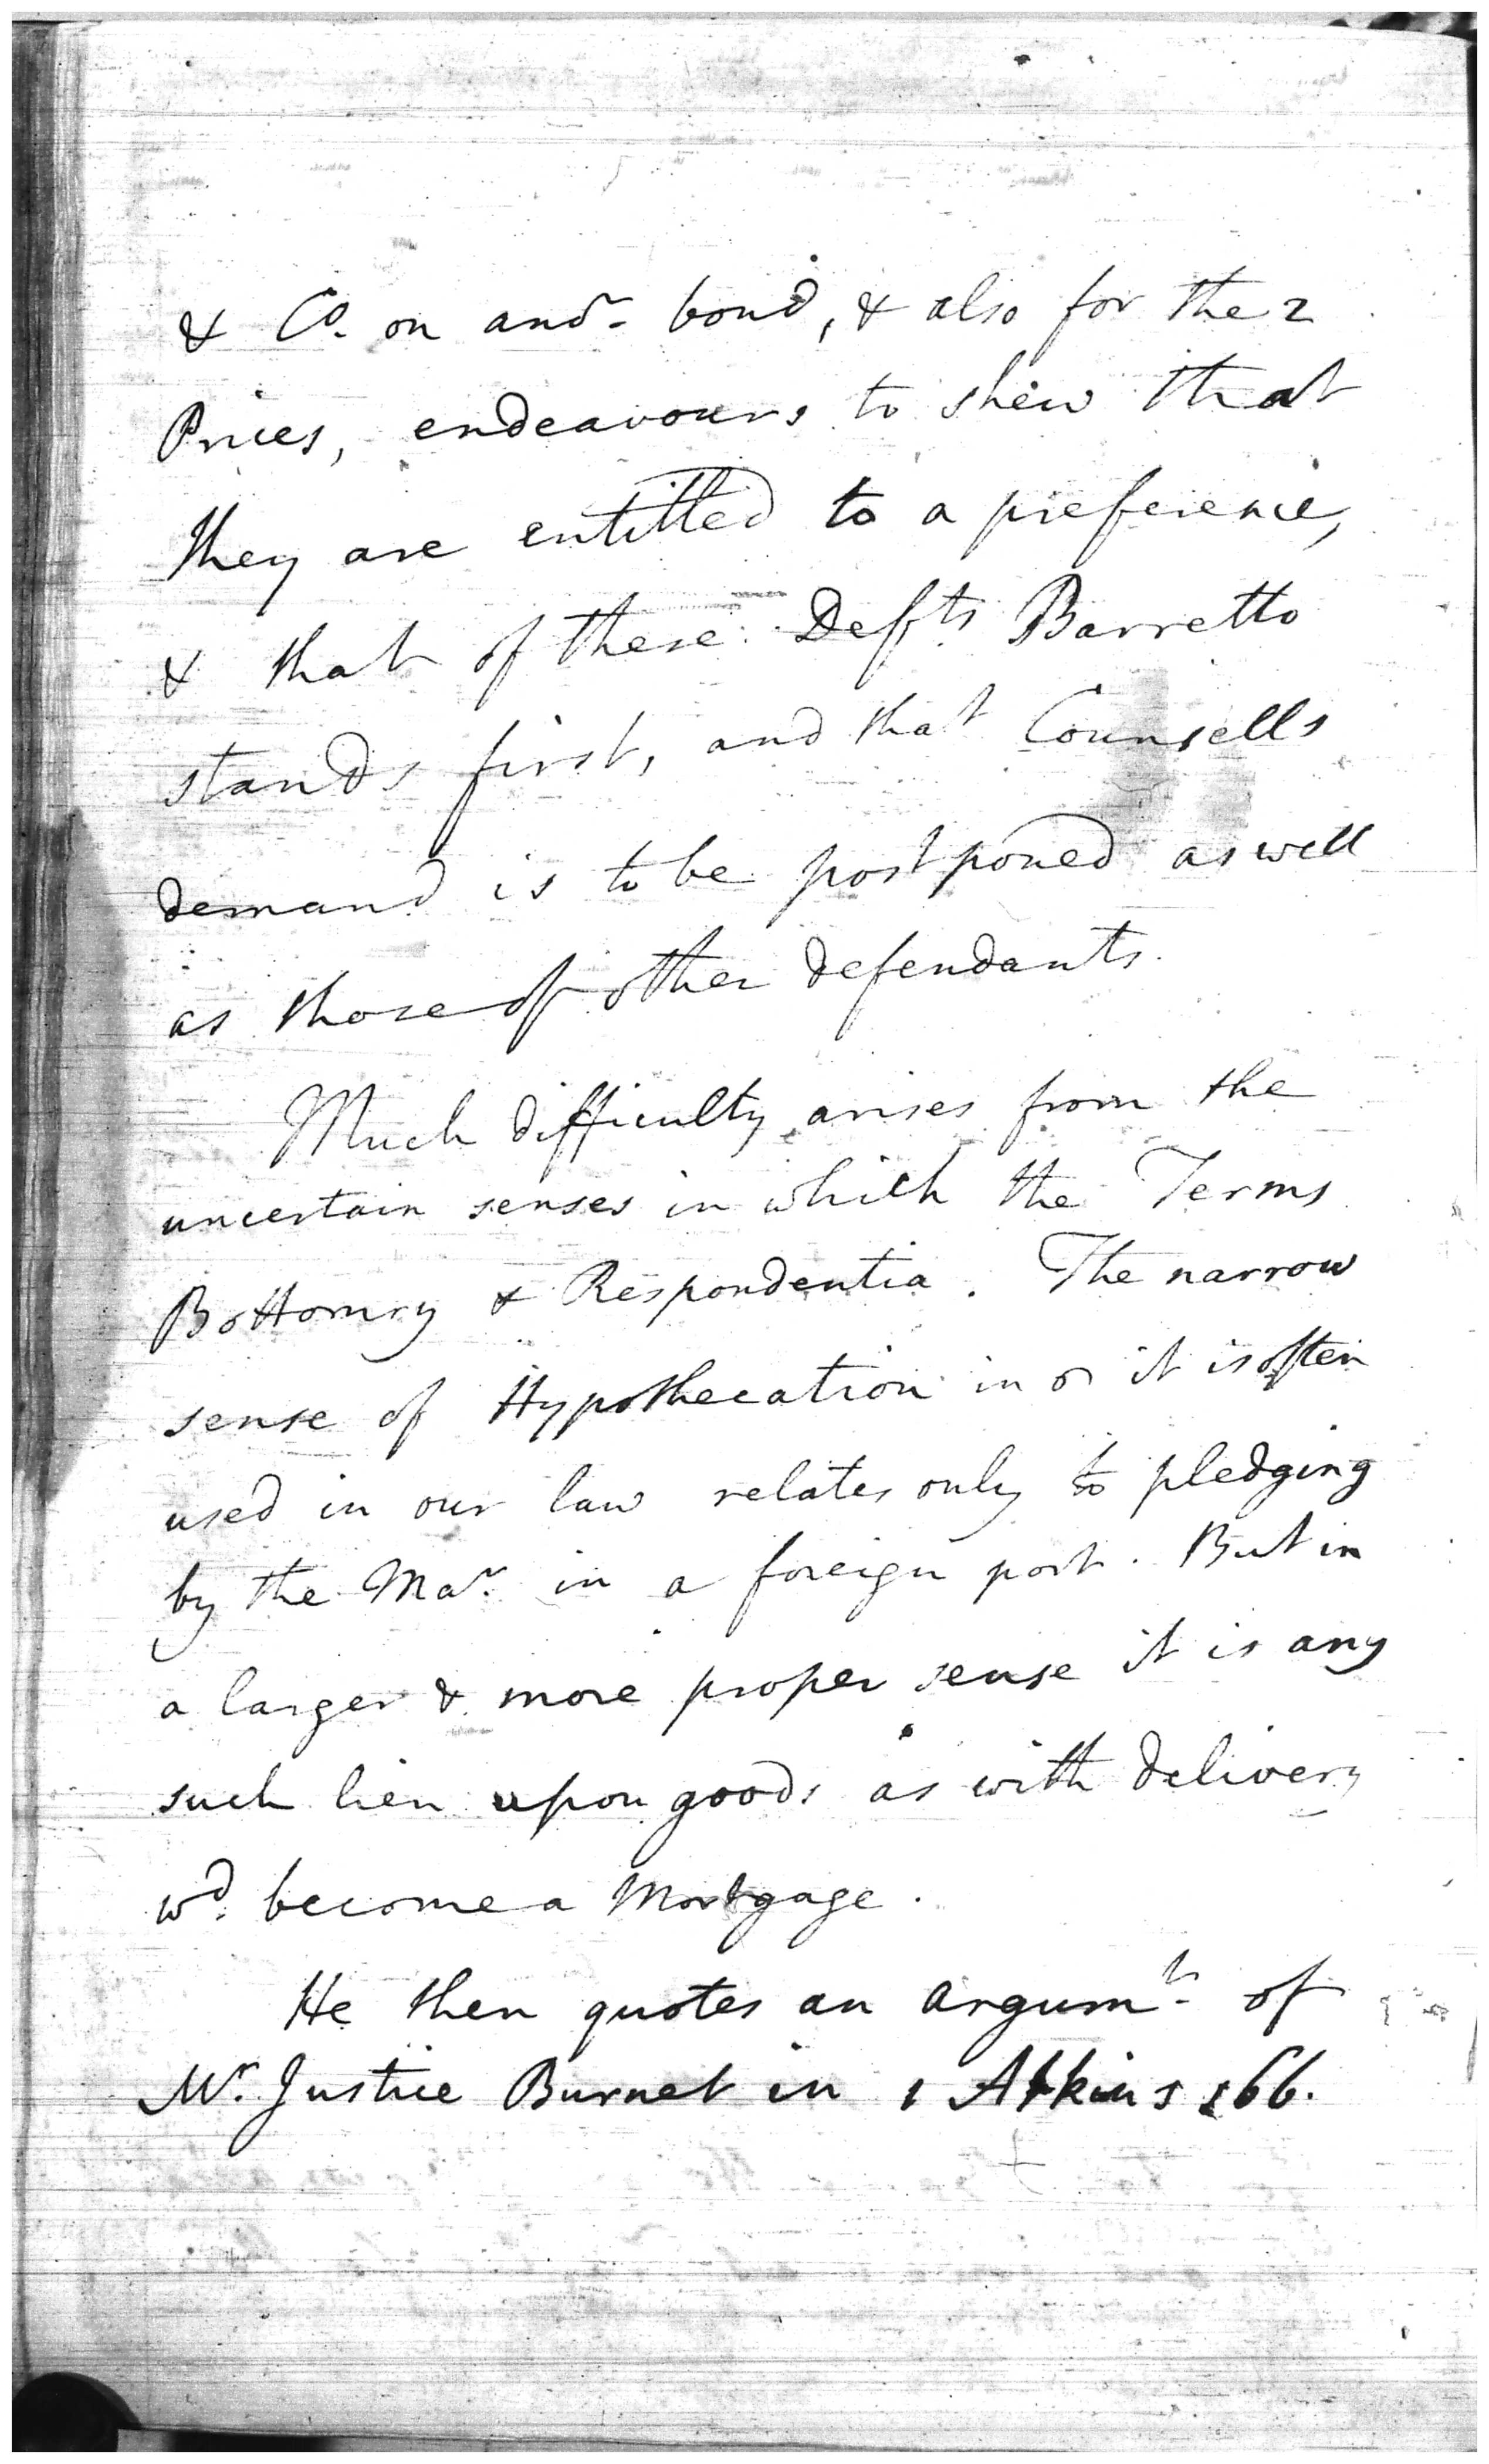 & Co. on anor. bond, & also for the 2
Prices, endeavours to shew that
they are entitled to a preference,
& that of these Defts Barretto
stands first, and that Counsells
demand is to be postponed as well
as those of other defendants.
Much difficulty arises from the
uncertain senses in which the Terms
Bottomry & Respondentia. The narrow
sense of Hypothecation in it is often
used in our law relates only to pledging
by the Mar. in a foreign port. But in
a larger & more proper sense it is any
such lien upon goods as with delivery
wd. become a Mortgage.
He then quotes an argumt. of
Mr. Justice Burnet in 1 Atkins 166.